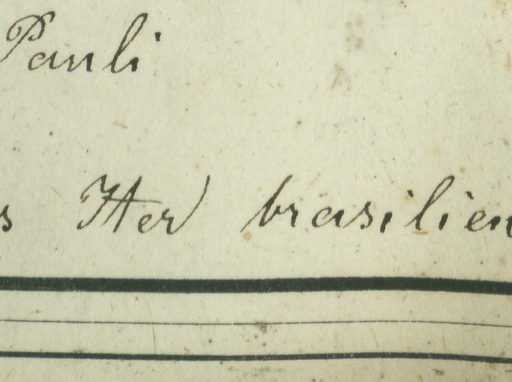 Pauli
s Iter brasilien